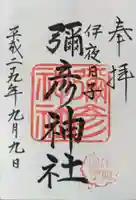 奉拝
伊夜日子
彌彦神社
平成二九年九月九日